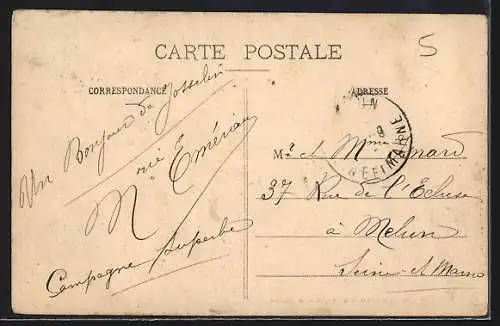 5
CARTE POSTALE
CORRESPONDANCE
ADRESSE
Un Bonjour de Josselin
Campagne superbe
Mr et Mme
37 Rue de l'Ecluse
à Melun
Seine-et-Marne